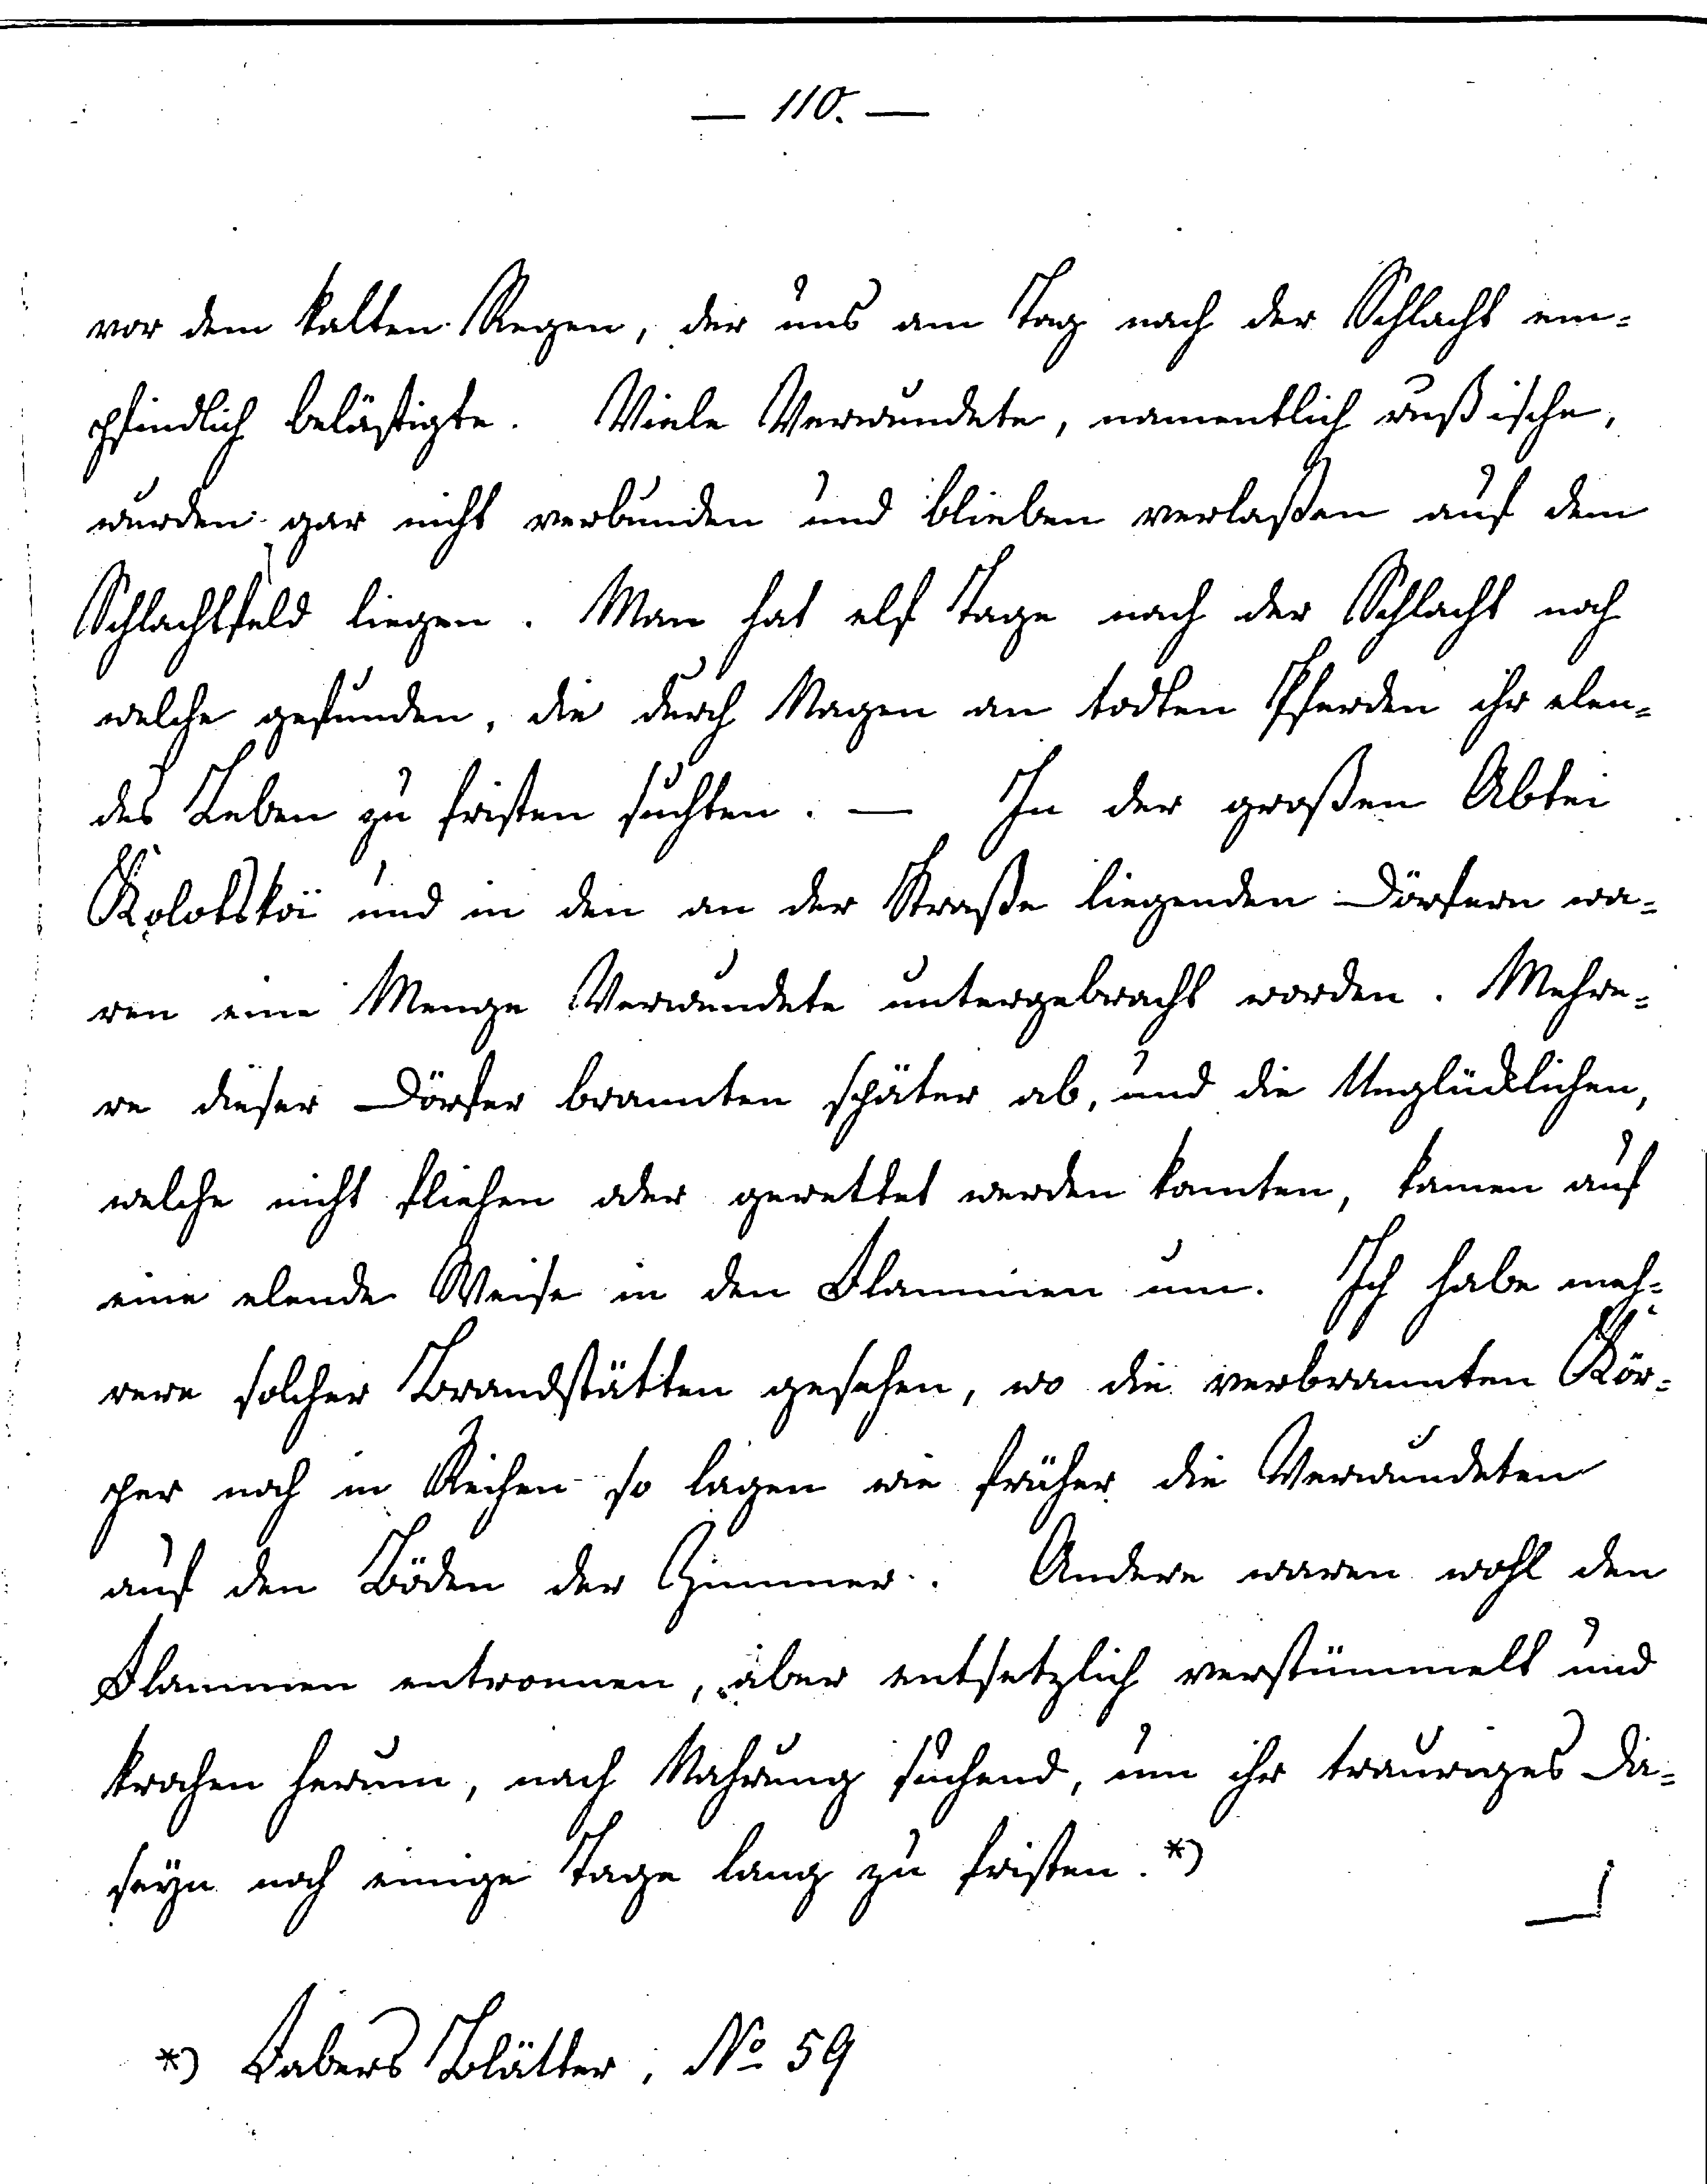 — 110. —
vor dem kalten Regen, der uns am Tag nach der Schlacht em-
pfindlich belästigte. Viele Verwundete, namentlich rußische,
wurden gar nicht verbunden und blieben verlaßen auf dem
Schlachtfeld liegen. Man hat elf Tage nach der Schlacht noch
welche gefunden, die durch Nagen an todten Pferden ihr elen-
des Leben zu fristen suchten. — In der großen Abtei
Kolotskoi und in den an der Straße liegenden Dörfern wa-
ren eine Menge Verwundete untergebracht worden. Mehre-
re dieser Dörfer brannten später ab, und die Unglücklichen,
welche nicht fliehen oder gerettet werden konnten, kamen auf
eine elende Weise in den Flammen um. Ich habe meh-
rere solcher Brandstätten gesehen, wo die verbrannten Kör-
per noch in Reihen so lagen wie früher die Verwundeten
auf den Böden der Zimmer. Andere waren wohl den
Flammen entronnen, aber entsetzlich verstümmelt und
krochen herum, nach Nahrung suchend, um ihr trauriges Da-
seyn noch einige Tage lang zu fristen. *)
*) Fabers Blätter, No 59